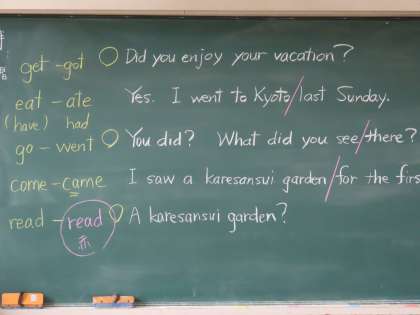 get - got
eat - ate
(have) had
go - went
come - came
read - read
赤
Did you enjoy your vacation?
Yes. I went to Kyoto/last Sunday.
You did? What did you see/there?
I saw a karesansui garden/for the firs
A karesansui garden?